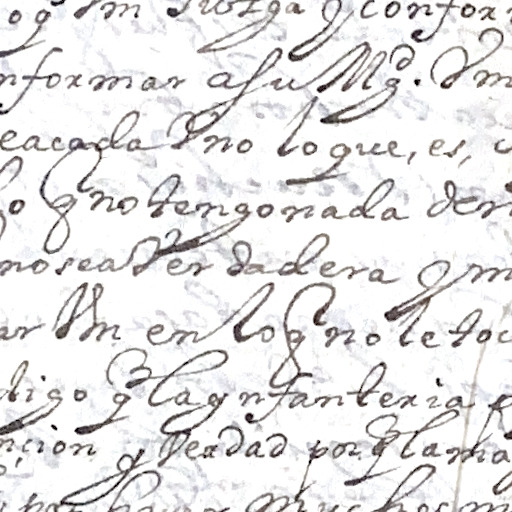 og Vm Juzga y confor
nformar a Su Mgd. Vm
eacada Vno lo que, es,
o q no tengo nada der
no sea Verdadera y m
ar Vm en lo q no le toc
tigo q la ynfanteria p
ncion y Verdad porq la ma
muchos m